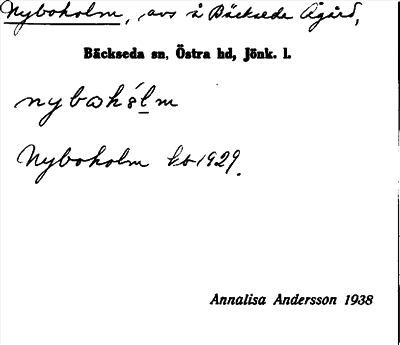 Nyboholm, avs å Bäckseda Ågård,
Bäckseda sn, Östra hd, Jönk. l.
nybωhólm
Nyboholm kb 1929.
Annalisa Andersson 1938